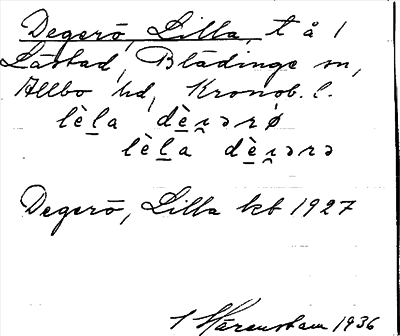 Degerö, Lilla, t å 1
Låstad, Blädinge sn,
Allbo hd, Kronob. l.
lèl̠a dè̠ɪ̯ərø
lèl̠a dè̠ɪ̯ərə
Degerö, Lilla kb 1927
1936